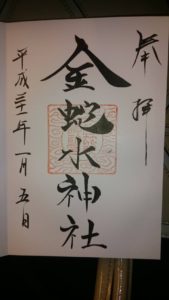 奉拝
金蛇水神社
平成三十一年一月五日